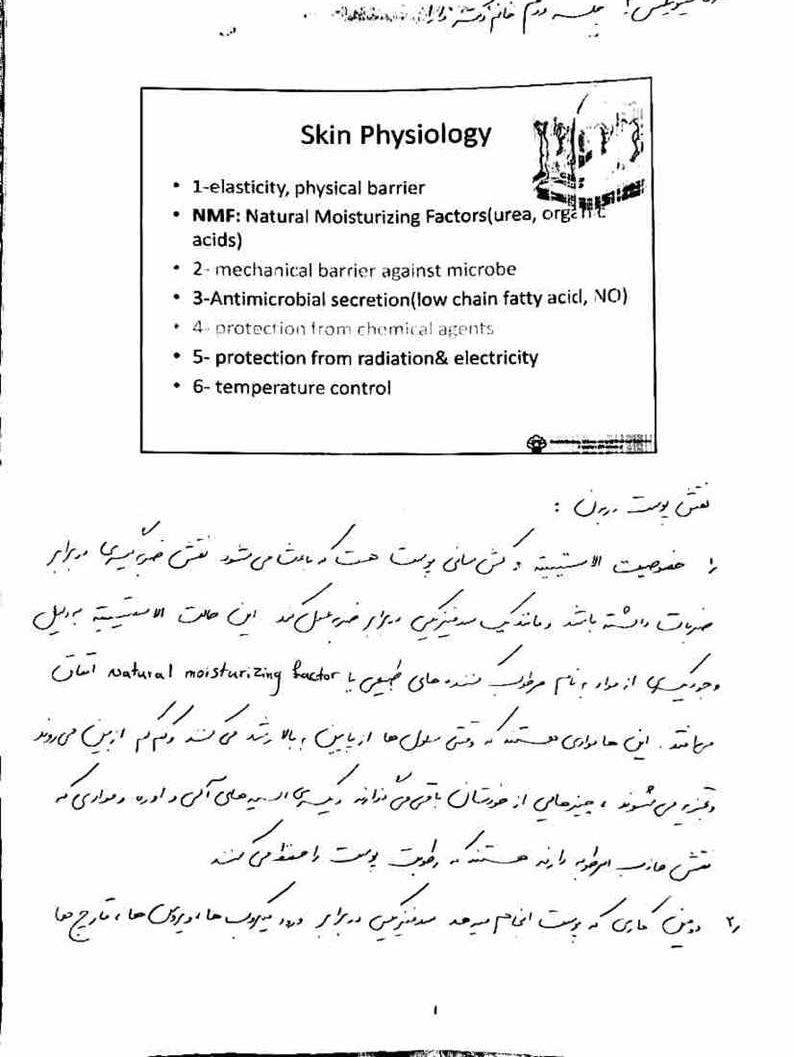 جلسه دوم خانم دکتر
Skin Physiology
• 1-elasticity, physical barrier
• NMF: Natural Moisturizing Factors(urea, organic
acids)
• 2- mechanical barrier against microbe
• 3-Antimicrobial secretion(low chain fatty acid, NO)
• 4- protection from chemical agents
• 5- protection from radiation& electricity
• 6- temperature control
نقش پوست در بدن :
۱٫ خصوصیت الاستیسیته و کش سانی پوست هست که باعث می شود نقش ضربه گیری در برابر
ضربات داشته باشد و مانند یک سد فیزیکی در برابر ضربه عمل کند این حالت الاستیسیته به دلیل
وجود یکسری از مواد به نام مرطوب کننده های طبیعی یا Natural moisturizing factor اتفاق
می افتد . این ها موادی هستند که وقتی سلول ها از پایین به بالا رشد می کنند و کم کم از بین می روند
و تجزیه می شوند ، چیزهایی از خودشان باقی می گذارند و یکسری اسیدهای آلی و اوره و موادی که
نقش جاذب الرطوبه دارند هستند که رطوبت پوست را حفظ می کنند
۲٫ دومین کاری که پوست انجام میدهد سد فیزیکی در برابر ورود میکروب ها ، ویروس ها ، قارچ ها
۱